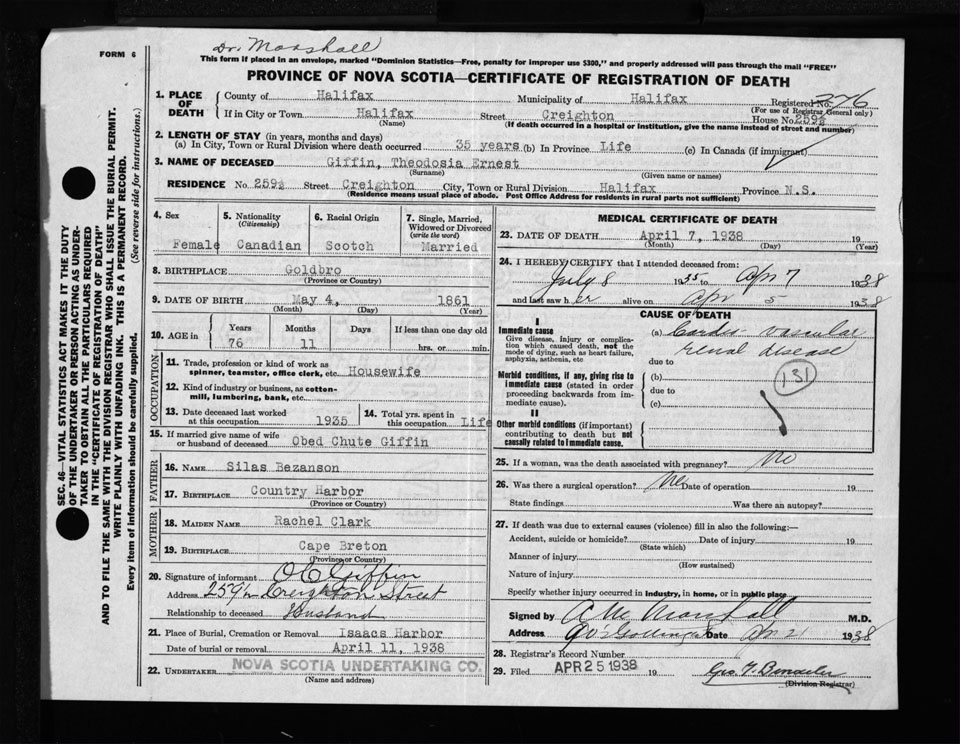 Dr. Marshall
FORM 6
This form if placed in an envelope, marked "Dominion Statistics—Free, penalty for improper use $300," and properly addressed will pass through the mail "FREE"
PROVINCE OF NOVA SCOTIA—CERTIFICATE OF REGISTRATION OF DEATH
1. PLACE OF DEATH
County of Halifax Municipality of Halifax Registered No. 376
(For use of Registrar General only)
If in City or Town Halifax Street Creighton House No. 259½
(Name) (If death occurred in a hospital or institution, give the name instead of street and number)
2. LENGTH OF STAY (in years, months and days)
(a) In City, Town or Rural Division where death occurred 35 years (b) In Province Life (c) In Canada (if immigrant)
3. NAME OF DECEASED Giffin, Theodosia Ernest
(Surname) (Given name or names)
RESIDENCE No. 259½ Street Creighton City, Town or Rural Division Halifax Province N.S.
(Residence means usual place of abode. Post Office Address for residents in rural parts not sufficient)
4. Sex
Female
5. Nationality
(Citizenship)
Canadian
6. Racial Origin
Scotch
7. Single, Married, Widowed or Divorced
(write the word)
Married
8. BIRTHPLACE Goldbro
(Province or Country)
9. DATE OF BIRTH May 4, 1861
(Month) (Day) (Year)
10. AGE in
Years Months Days If less than one day old
76 11 hrs. or min.
OCCUPATION
11. Trade, profession or kind of work as spinner, teamster, office clerk, etc Housewife
12. Kind of industry or business, as cotton-mill, lumbering, bank, etc.
13. Date deceased last worked at this occupation 1935
14. Total yrs. spent in this occupation Life
15. If married give name of wife or husband of deceased Obed Chute Giffin
FATHER
16. NAME Silas Bezanson
17. BIRTHPLACE Country Harbor
(Province or Country)
MOTHER
18. MAIDEN NAME Rachel Clark
19. BIRTHPLACE Cape Breton
(Province or Country)
20. Signature of informant O C Giffin
Address 259½ Creighton Street
Relationship to deceased Husband
21. Place of Burial, Cremation or Removal Isaacs Harbor
Date of burial or removal April 11, 1938
22. UNDERTAKER NOVA SCOTIA UNDERTAKING CO.
(Name and address)
MEDICAL CERTIFICATE OF DEATH
23. DATE OF DEATH April 7, 1938 19
(Month) (Day) (Year)
24. I HEREBY CERTIFY that I attended deceased from:
July 8 1935 to Apr 7 1938
and last saw h er alive on Apr 5 1938
CAUSE OF DEATH
I
Immediate cause
Give disease, injury or complication which caused death, not the mode of dying, such as heart failure, asphyxia, asthenia, etc
(a) Cardio vascular
renal disease
due to
Morbid conditions, if any, giving rise to immediate cause (stated in order proceeding backwards from immediate cause).
(b)
due to
(c)
131
II
Other morbid conditions (if important) contributing to death but not causally related to immediate cause.
25. If a woman, was the death associated with pregnancy? No
26. Was there a surgical operation? No Date of operation 19
State findings Was there an autopsy?
27. If death was due to external causes (violence) fill in also the following:—
Accident, suicide or homicide? Date of injury 19
(State which)
Manner of injury
(How sustained)
Nature of injury
Specify whether injury occurred in industry, in home, or in public place
Signed by A M Marshall M.D.
Address Date Apr 21 1938
28. Registrar's Record Number
29. Filed APR 25 1938 19
(Division Registrar)
SEC. 46—VITAL STATISTICS ACT MAKES IT THE DUTY
OF THE UNDERTAKER OR PERSON ACTING AS UNDER-
TAKER TO OBTAIN ALL THE PARTICULARS REQUIRED
IN THE "CERTIFICATE OF REGISTRATION OF DEATH"
AND TO FILE THE SAME WITH THE DIVISION REGISTRAR WHO SHALL ISSUE THE BURIAL PERMIT.
WRITE PLAINLY WITH UNFADING INK. THIS IS A PERMANENT RECORD.
Every item of information should be carefully supplied. (See reverse side for instructions.)